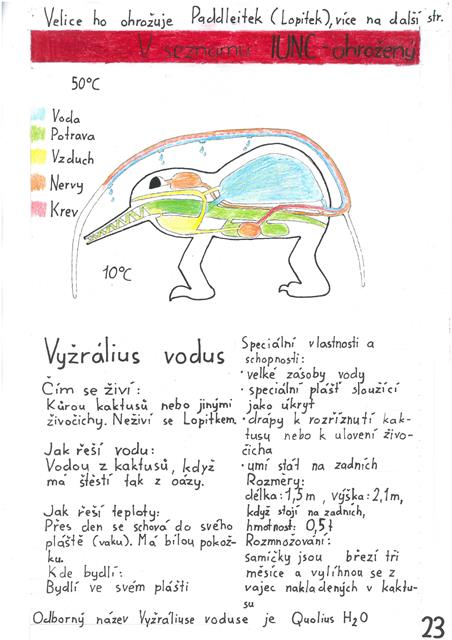 Velice ho ohrožuje Paddleitek (Lopitek), více na další str.
V seznamu IUNC - ohrožený
50°C
Voda
Potrava
Vzduch
Nervy
Krev
10°C
Vyžrálius vodus
Čím se živí:
Kůrou kaktusů nebo jinými
živočichy. Neživí se Lopitkem.
Jak řeší vodu:
Vodou z kaktusů, když
má štěstí tak z oázy.
Jak řeší teploty:
Přes den se schová do svého
pláště (vaku). Má bílou pokož-
ku.
Kde bydlí:
Bydlí ve svém plášti
Speciální vlastnosti a
schopnosti:
• velké zásoby vody
• speciální plášť sloužící
jako úkryt
• drápy k rozříznutí kak-
tusu nebo k ulovení živo-
čicha
• umí stát na zadních
Rozměry:
délka: 1,5 m, výška: 2,1m,
když stojí na zadních,
hmotnost: 0,5t
Rozmnožování:
samičky jsou březí tři
měsíce a vylíhnou se z
vajec nakladených v kaktu-
su
Odborný název Vyžráliuse voduse je Quolius H2O
23